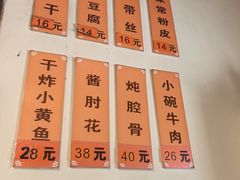 干
16元
豆腐
14元
带丝
16元
常粉皮
14元
干炸小黄鱼
28元
酱肘花
38元
炖腔骨
40元
小碗牛肉
26元